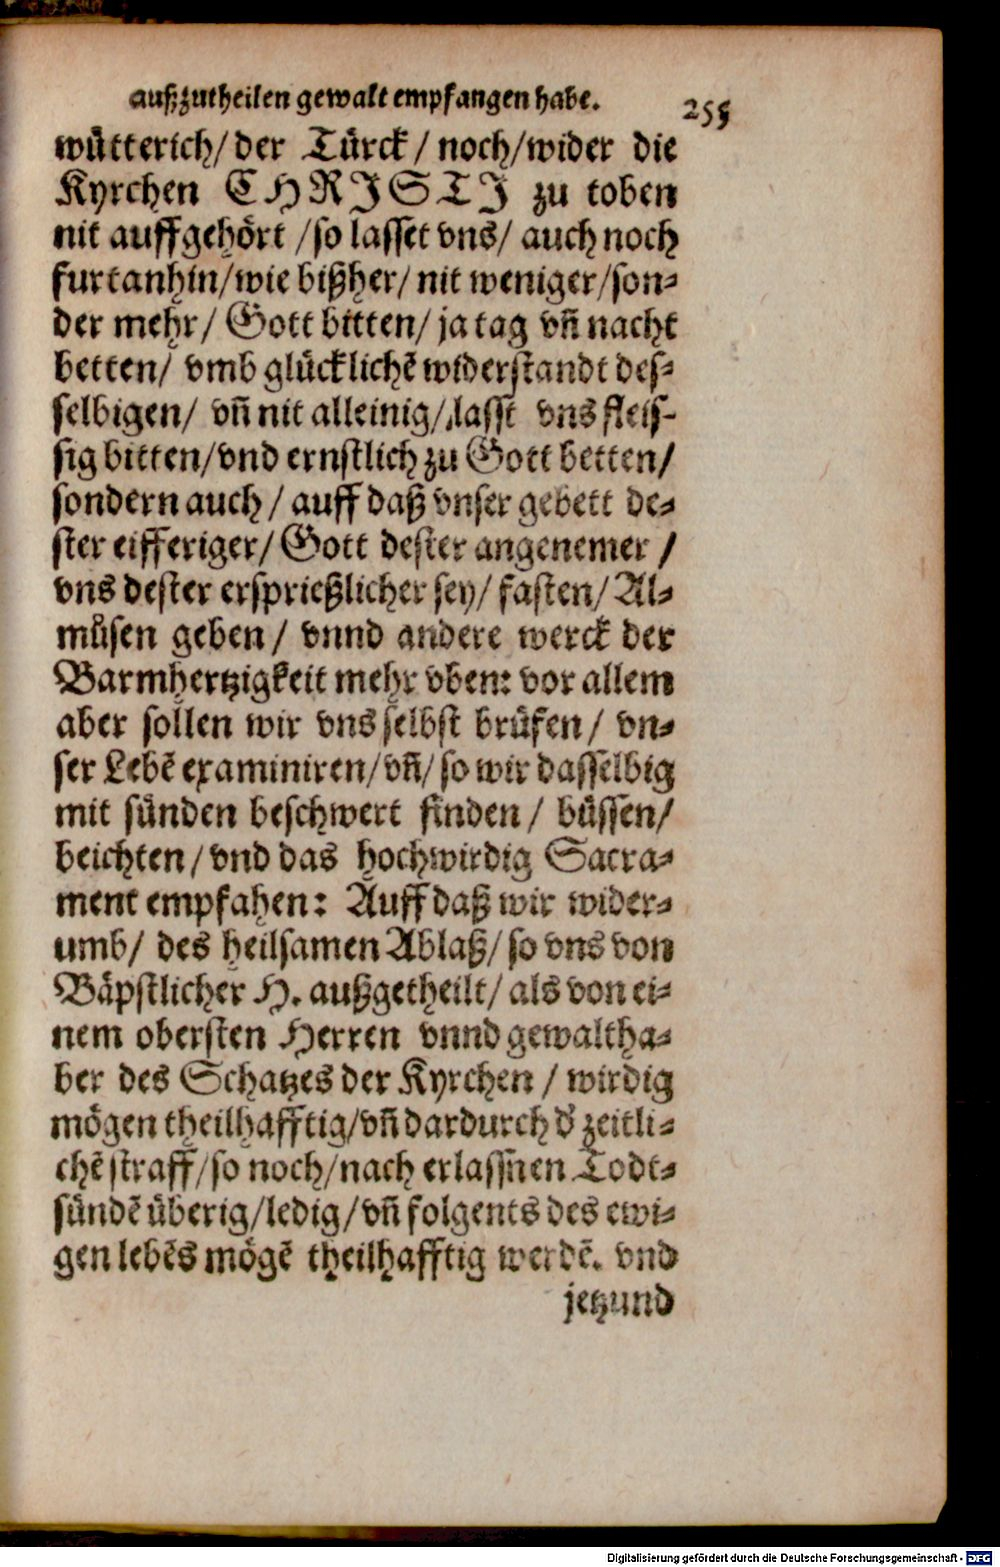 außzutheilen gewalt empfangen habe. 255
wuͤtterich/ der Tuͤrck/ noch/wider die
Kyrchen CHRISTI zu toben
nit auffgehoͤrt /so lasset vns/ auch noch
furtanhin/wie bißher/ nit weniger/son-
der mehr/ Gott bitten/ ja tag vn̄ nacht
betten/ vmb gluͤcklichē widerstandt des-
selbigen/ vn̄ nit alleinig/ lasst vns fleis-
sig bitten/vnd ernstlich zu Gott betten/
sondern auch/ auff daß vnser gebett de-
ster eifferiger/ Gott dester angenemer /
vns dester ersprießlicher sey/ fasten/ Al-
muͦsen geben/ vnnd andere werck der
Barmhertzigkeit mehr vben: vor allem
aber sollen wir vns selbst bruͤfen/ vn-
ser Lebē examiniren/vn̄/ so wir dasselbig
mit suͤnden beschwert finden/ buͤssen/
beichten/vnd das hochwirdig Sacra-
ment empfahen: Auff daß wir wider-
umb/ des heilsamen Ablaß/ so vns von
Baͤpstlicher H. außgetheilt/ als von ei-
nem obersten Herren vnnd gewaltha-
ber des Schatzes der Kyrchen/ wirdig
moͤgen theilhafftig/vn̄ dardurch dʼ zeitli-
chē straff/so noch/nach erlassn̄en Todt-
suͤndē uͤberig/ledig/vn̄ folgents des ewi-
gen lebēs moͤgē theilhafftig werdē. vnd
jetzund
Digitalisierung gefördert durch die Deutsche Forschungsgemeinschaft - DFG